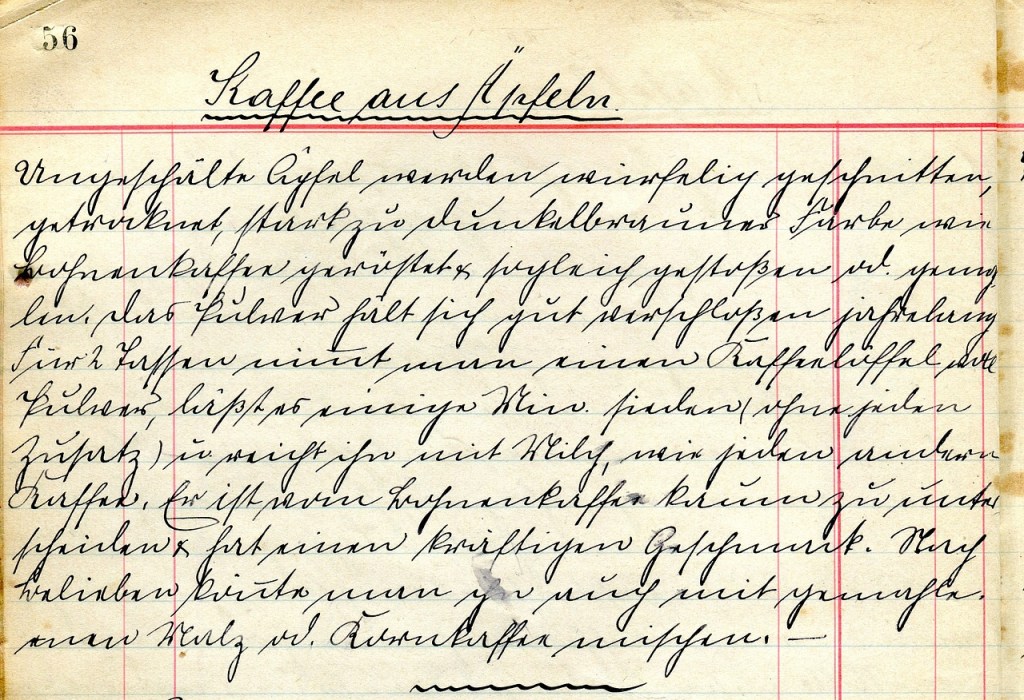 56
Kaffee aus Äpfeln.
Ungeschälte Äpfel werden würfelig geschnitten,
getrocknet, stark zu dunkelbrauner Farbe wie
Bohnenkaffee geröstet & sogleich gestoßen od. gemah-
len. Das Pulver hält sich gut verschloßen jahrelang
Für 2 Tassen nim̅t man einen Kaffeelöffel voll
Pulver, läßt es einige Min. sieden (ohne jeden
Zusatz) u reicht ihn mit Milch, wie jeden andern
Kaffee. Er ist vom Bohnenkaffee kaum zu unter
scheiden & hat einen kräftigen Geschmack. Nach
Belieben kön̅te man ihn auch mit gemahle-
nen Malz od. Kornkaffee mischen. —